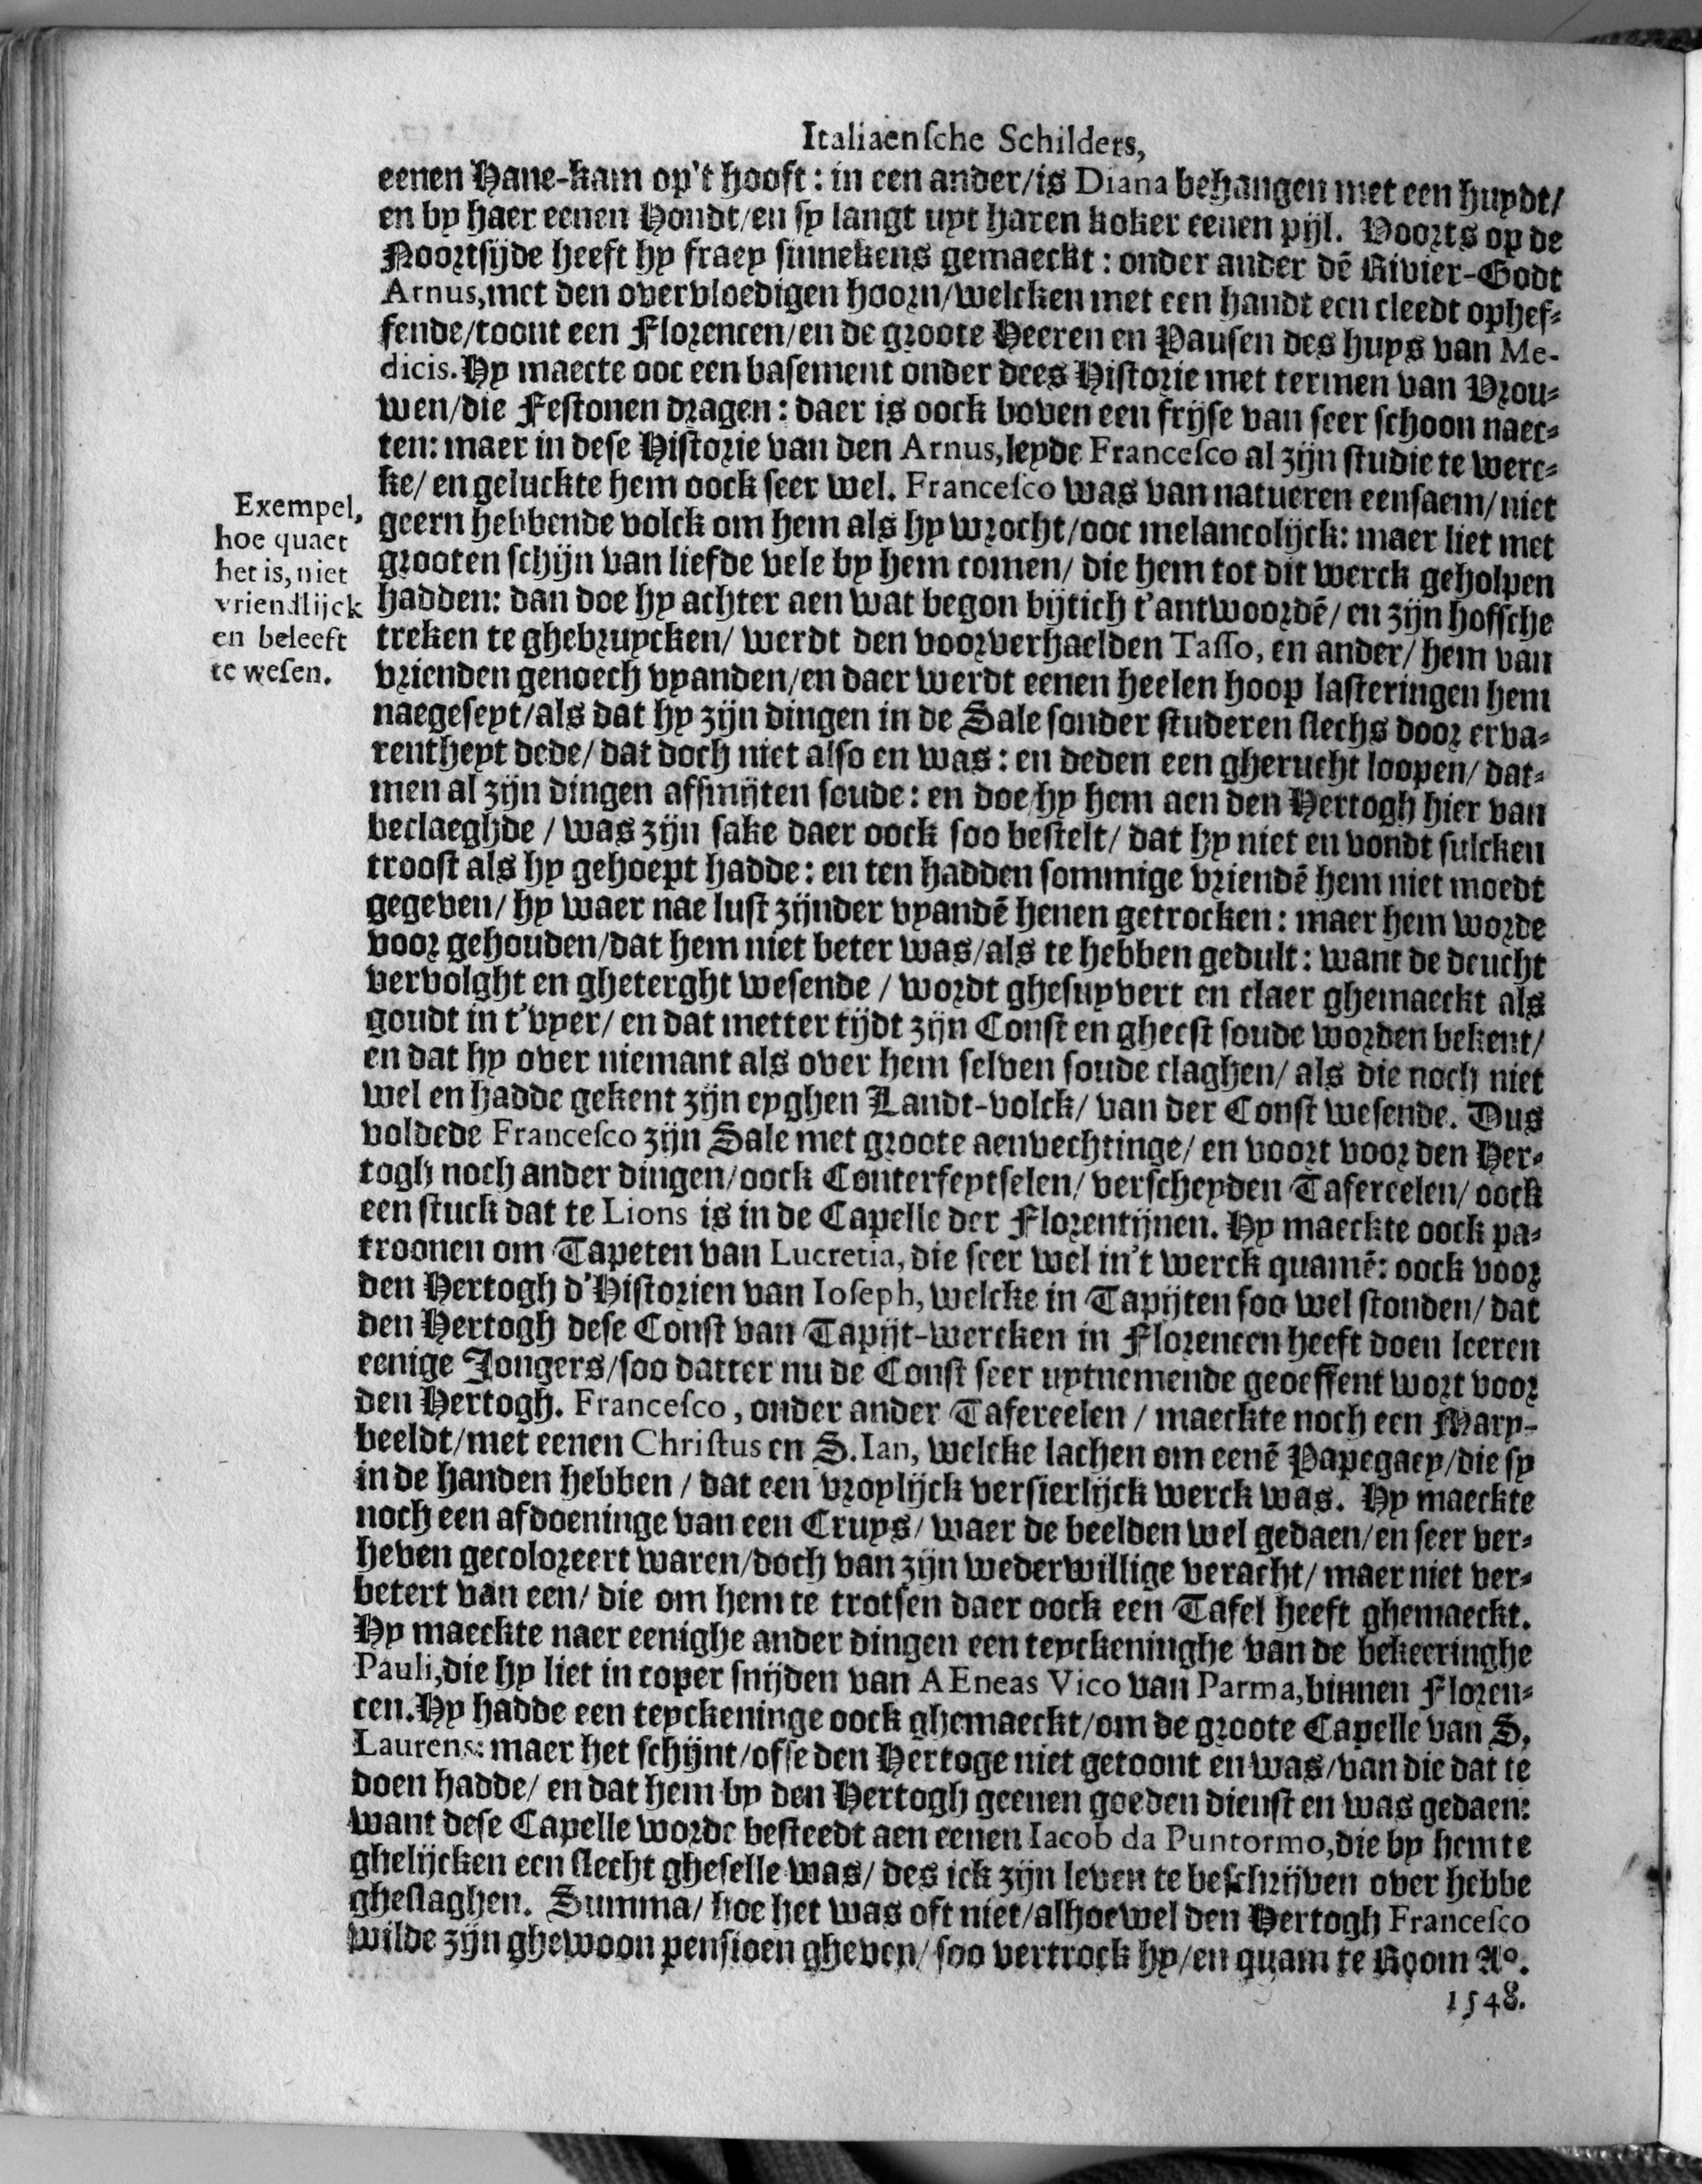 Italiaensche Schilders,
eenen Hane-kam op't hooft: in een ander/is Diana behangen met een huydt/
en by haer eenen Hondt/en sy langt uyt haren koker eenen pijl. Voorts op de
Noortsijde heeft hy fraey sinnekens gemaeckt: onder ander dē Rivier-Godt
Arnus, met den overvloedigen hoorn/welcken met een handt een cleedt ophef-
fende/toont een Florencen/en de groote Heeren en Pausen des huys van Me-
dicis. Hy maecte ooc een basement onder dees Historie met termen van Vrou-
wen/die Festonen dragen: daer is oock boven een frijse van seer schoon naec-
ten: maer in dese Historie van den Arnus, leyde Francesco al zijn studie te werc-
ke/ en geluckte hem oock seer wel. Francesco was van natueren eensaem/niet
geern hebbende volck om hem als hy wrocht/ooc melancolijck: maer liet met
grooten schijn van liefde vele by hem comen/ die hem tot dit werck geholpen
hadden: dan doe hy achter aen wat begon bijtich t'antwoordē/ en zijn hofsche
treken te ghebruycken/ werdt den voorverhaelden Tasso, en ander/ hem van
vrienden genoech vyanden/en daer werdt eenen heelen hoop lasteringen hem
naegeseyt/als dat hy zijn dingen in de Sale sonder studeren slechs door erva-
rentheyt dede/ dat doch niet also en was: en deden een gherucht loopen/ dat-
men al zijn dingen afsmijten soude: en doe hy hem aen den Hertogh hier van
beclaeghde / was zijn sake daer oock soo bestelt/ dat hy niet en vondt sulcken
troost als hy gehoept hadde: en ten hadden sommige vriendē hem niet moedt
gegeven/ hy waer nae lust zijnder vyandē henen getrocken: maer hem worde
voor gehouden/dat hem niet beter was/als te hebben gedult: want de deucht
vervolght en gheterght wesende / wordt ghesuyvert en claer ghemaeckt als
goudt in t'vyer/ en dat metter tijdt zijn Const en gheest soude worden bekent/
en dat hy over niemant als over hem selven soude claghen/ als die noch niet
wel en hadde gekent zijn eyghen Landt-volck/ van der Const wesende. Dus
voldede Francesco zijn Sale met groote aenvechtinge/ en voort voor den Her-
togh noch ander dingen/oock Conterfeytselen/ verscheyden Tafereelen/ oock
een stuck dat te Lions is in de Capelle der Florentijnen. Hy maeckte oock pa-
troonen om Tapeten van Lucretia, die seer wel in't werck quamē: oock voor
den Hertogh d'Historien van Ioseph, welcke in Tapijten soo wel stonden/ dat
den Hertogh dese Const van Tapijt-wercken in Florencen heeft doen leeren
eenige Jongers/soo datter nu de Const seer uytnemende geoeffent wort voor
den Hertogh. Francesco, onder ander Tafereelen / maeckte noch een Mary-
beeldt/met eenen Christus en S. Ian, welcke lachen om eenē Papegaey/die sy
in de handen hebben / dat een vroylijck versierlijck werck was. Hy maeckte
noch een afdoeninge van een Cruys/ waer de beelden wel gedaen/en seer ver-
heven gecoloreert waren/doch van zijn wederwillige veracht/ maer niet ver-
betert van een/ die om hem te trotsen daer oock een Tafel heeft ghemaeckt.
Hy maeckte naer eenighe ander dingen een teyckeninghe van de bekeeringhe
Pauli, die hy liet in coper snijden van AEneas Vico van Parma, binnen Floren-
cen. Hy hadde een teyckeninge oock ghemaeckt/om de groote Capelle van S.
Laurens: maer het schijnt/ofse den Hertoge niet getoont en was/van die dat te
doen hadde/ en dat hem by den Hertogh geenen goeden dienst en was gedaen:
want dese Capelle worde besteedt aen eenen Iacob da Puntormo, die by hem te
ghelijcken een slecht gheselle was/ des ick zijn leven te beschrijven over hebbe
gheslaghen. Summa/ hoe het was oft niet/alhoewel den Hertogh Francesco
wilde zijn ghewoon pensioen gheven/ soo vertrock hy/en quam te Room Aº.
1548.
Exempel,
hoe quaet
het is, niet
vriendlijck
en beleeft
te wesen.